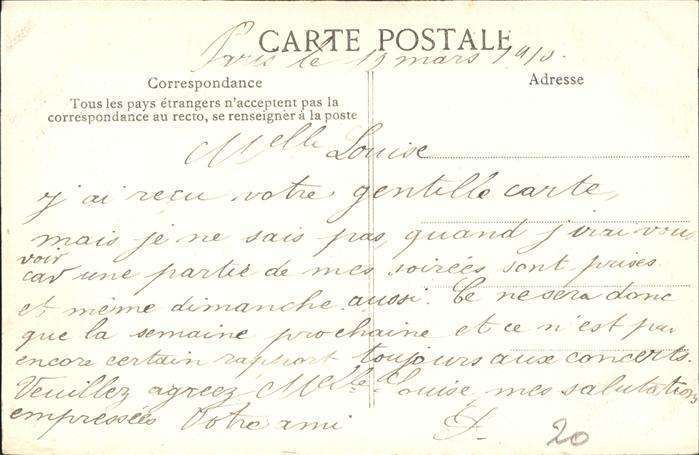 CARTE POSTALE
Paris le 19 mars 1910.
Correspondance
Adresse
Tous les pays étrangers n'acceptent pas la
correspondance au recto, se renseigner à la poste
Melle Louise
J'ai reçu votre gentille carte,
mais je ne sais pas, quand j'irai vous
voir
car une partie de mes soirées sont prises
et même dimanche aussi. Ce ne sera donc
que la semaine prochaine et ce n'est pas
encore certain rapport toujours aux concerts.
Veuillez agreez Melle Louise mes salutations
empressées Votre ami
20